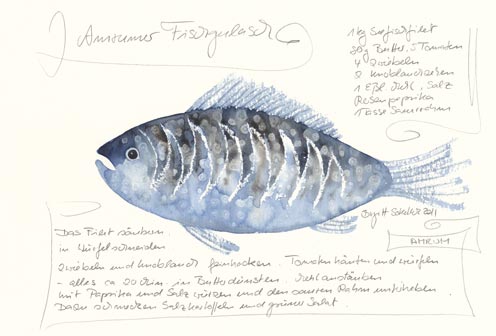 Amrumer Fischgulasch
1 kg Seefischfilet
80g Butter, 5 Tomaten
4 Zwiebeln
2 Knoblauchzehen
1 Eßl. Mehl, Salz
Rosenpaprika
1 Tasse Sauerrahm
Birgit Sokolick 2011
AMRUM
Das Filet säubern
in Würfel schneiden
Zwiebeln und Knoblauch feinhacken. Tomaten häuten und würfeln
- alles ca 20 Min. in Butter dünsten. Mehl anstäuben
mit Paprika und Salz würzen und den sauren Rahm unterheben.
Dazu schmecken Salzkartoffeln und grüner Salat.